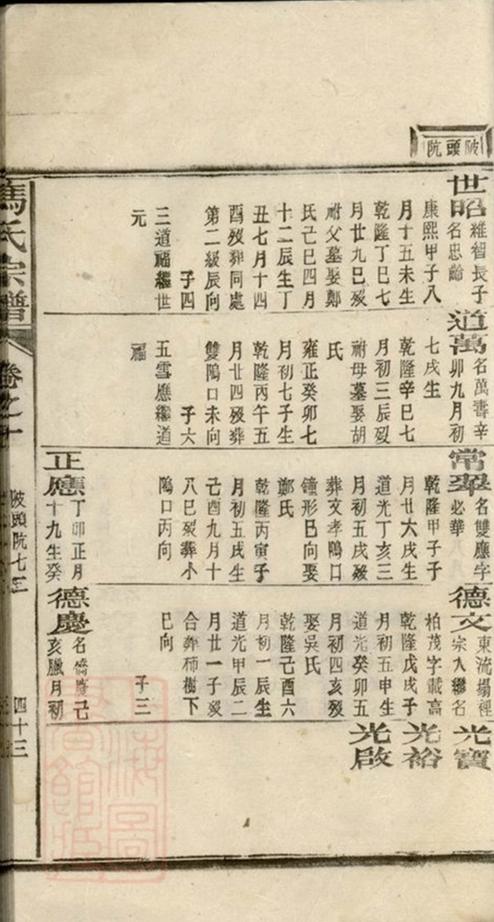 陂頭阬
世昭 維智長子
名忠齡
康熙甲子八
月十五未生
乾隆丁巳七
月廿九巳歿
祔父墓娶鄭
氏己巳四月
十二辰生丁
丑七月十四
酉歿葬同處
第二級辰向
子四
三道福繼世
元
道萬 名萬壽辛
卯九月初
七戌生
乾隆辛巳七
月初三辰歿
祔母墓娶胡
氏
雍正癸卯七
月初七子生
乾隆丙午五
月廿四歿葬
雙隝口未向
子六
五雪應繼道
福
常翠 名雙應字
必華
乾隆甲子子
月廿六戌生
道光丁亥三
月初五戌歿
葬文孝隝口
鐘形巳向娶
鄭氏
乾隆丙寅子
月初五戌生
己酉九月十
八巳歿葬小
隝口丙向
正應 丁卯正月
十九生癸
德文 東流塥徑
宗人繼名
柏茂字載高
乾隆戊戌子
月初五申生
道光癸卯五
月初四亥歿
娶吳氏
乾隆己酉六
月初一辰生
道光甲辰二
月廿一子歿
合葬柿樹下
巳向
子三
德慶 名僑慶己
亥臘月初
光寶
光裕
光啟
馮氏宗譜
卷之十
陂頭阬七三
四十三